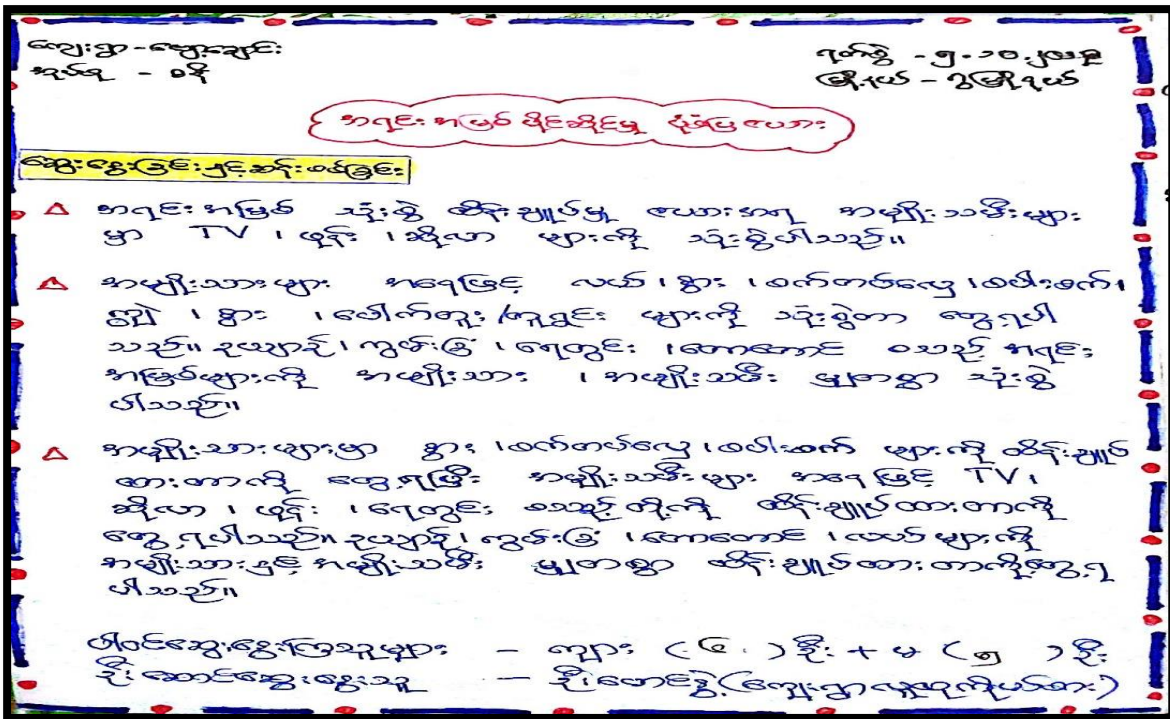 ကျေးရွာ - မျှော့ချောင်း
အုပ်စု - စနိ
ရက်စွဲ - ၅.၁၀.၂၀၁၃
မြို့နယ် - ဂွမြို့နယ်
အရင်းအမြစ် ပိုင်ဆိုင်မှု ပုံစံပြဇယား
ဆွေးနွေးခြင်းနှင့်ဆန်းစစ်ခြင်း
Δ အရင်းအမြစ် သုံးစွဲ ထိန်းချုပ်မှု ဇယားအရ အမျိုးသမီးများ
မှာ TV ၊ ဖုန်း ၊ဆိုလာ များကို သုံးစွဲပါသည်။
Δ အမျိုးသားများ အနေဖြင့် လယ် ၊ နွား ၊ စက်တပ်လှေ ၊ စပါးစက်၊
ကျွဲ ၊ နွား ၊ ပေါက်တူး /တူရွင်း များကို သုံးစွဲတာ တွေ့ရပါ
သည်။ ဥယျာဉ် ၊ ကွမ်းခြံ ၊ ရေတွင်း ၊တောတောင် စသည့် အရင်း
အမြစ်များကို အမျိုးသား ၊ အမျိုးသမီး မျှတစွာ သုံးစွဲ
ပါသည်။
Δ အမျိုးသားများမှာ နွား ၊စက်တပ်လှေ ၊စပါးစက် များကို ထိန်းချုပ်
ထားတာကို တွေ့ရပြီး အမျိုးသမီးများ အနေဖြင့် TV ၊
ဆိုလာ ၊ ဖုန်း ၊ရေတွင်း စသည့်တို့ကို ထိန်းချုပ်ထားတာကို
တွေ့ရပါသည်။ ဥယျာဉ် ၊ ကွမ်းခြံ ၊တောတောင် ၊လယ် များကို
အမျိုးသားနှင့် အမျိုးသမီး မျှတစွာ ထိန်းချုပ်ထားတာကိုတွေ့ရ
ပါသည်။
ပါဝင်ဆွေးနွေးကြသူများ - ကျား (၆) ဦး + မ (၅) ဦး
ဦးဆောင်ဆွေးနွေးသူ - ဦးဖောင်ရွဲ့(ကျေးရွာလူထုကိုယ်စား)